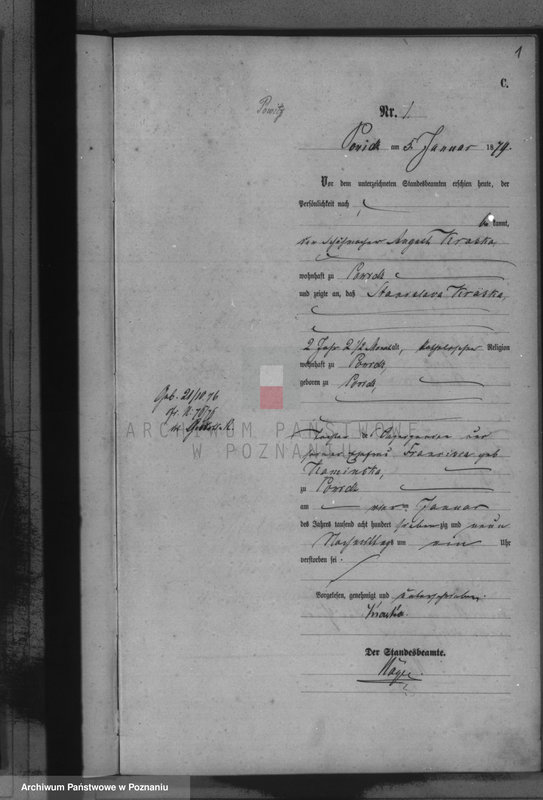 1
C.
Powitz
Nr. 1
Powidz am 5 Januar 1879.
Vor dem unterzeichneten Standesbeamten erschien heute, der
Persönlichkeit nach
be kannt,
August Kraska,
wohnhaft zu Powidz
und zeigte an, daß Stanislava Kraska,
2 Jahr 2 1/2 Monat alt, katholischer Religion
wohnhaft zu Powidz,
geboren zu Powidz,
Geb. 21/10 76
ARCHIWUM PAŃSTWOWE
W POZNANIU
Tochter des und
seiner Ehefrau Franciska geb
Kaminska,
zu Powidz
am vier ten Januar
des Jahres tausend acht hundert sieben zig und neun
Nachmittags um ein Uhr
verstorben sei.
Vorgelesen, genehmigt und unterschrieben.
Kraska.
Der Standesbeamte.
Archiwum Państwowe w Poznaniu